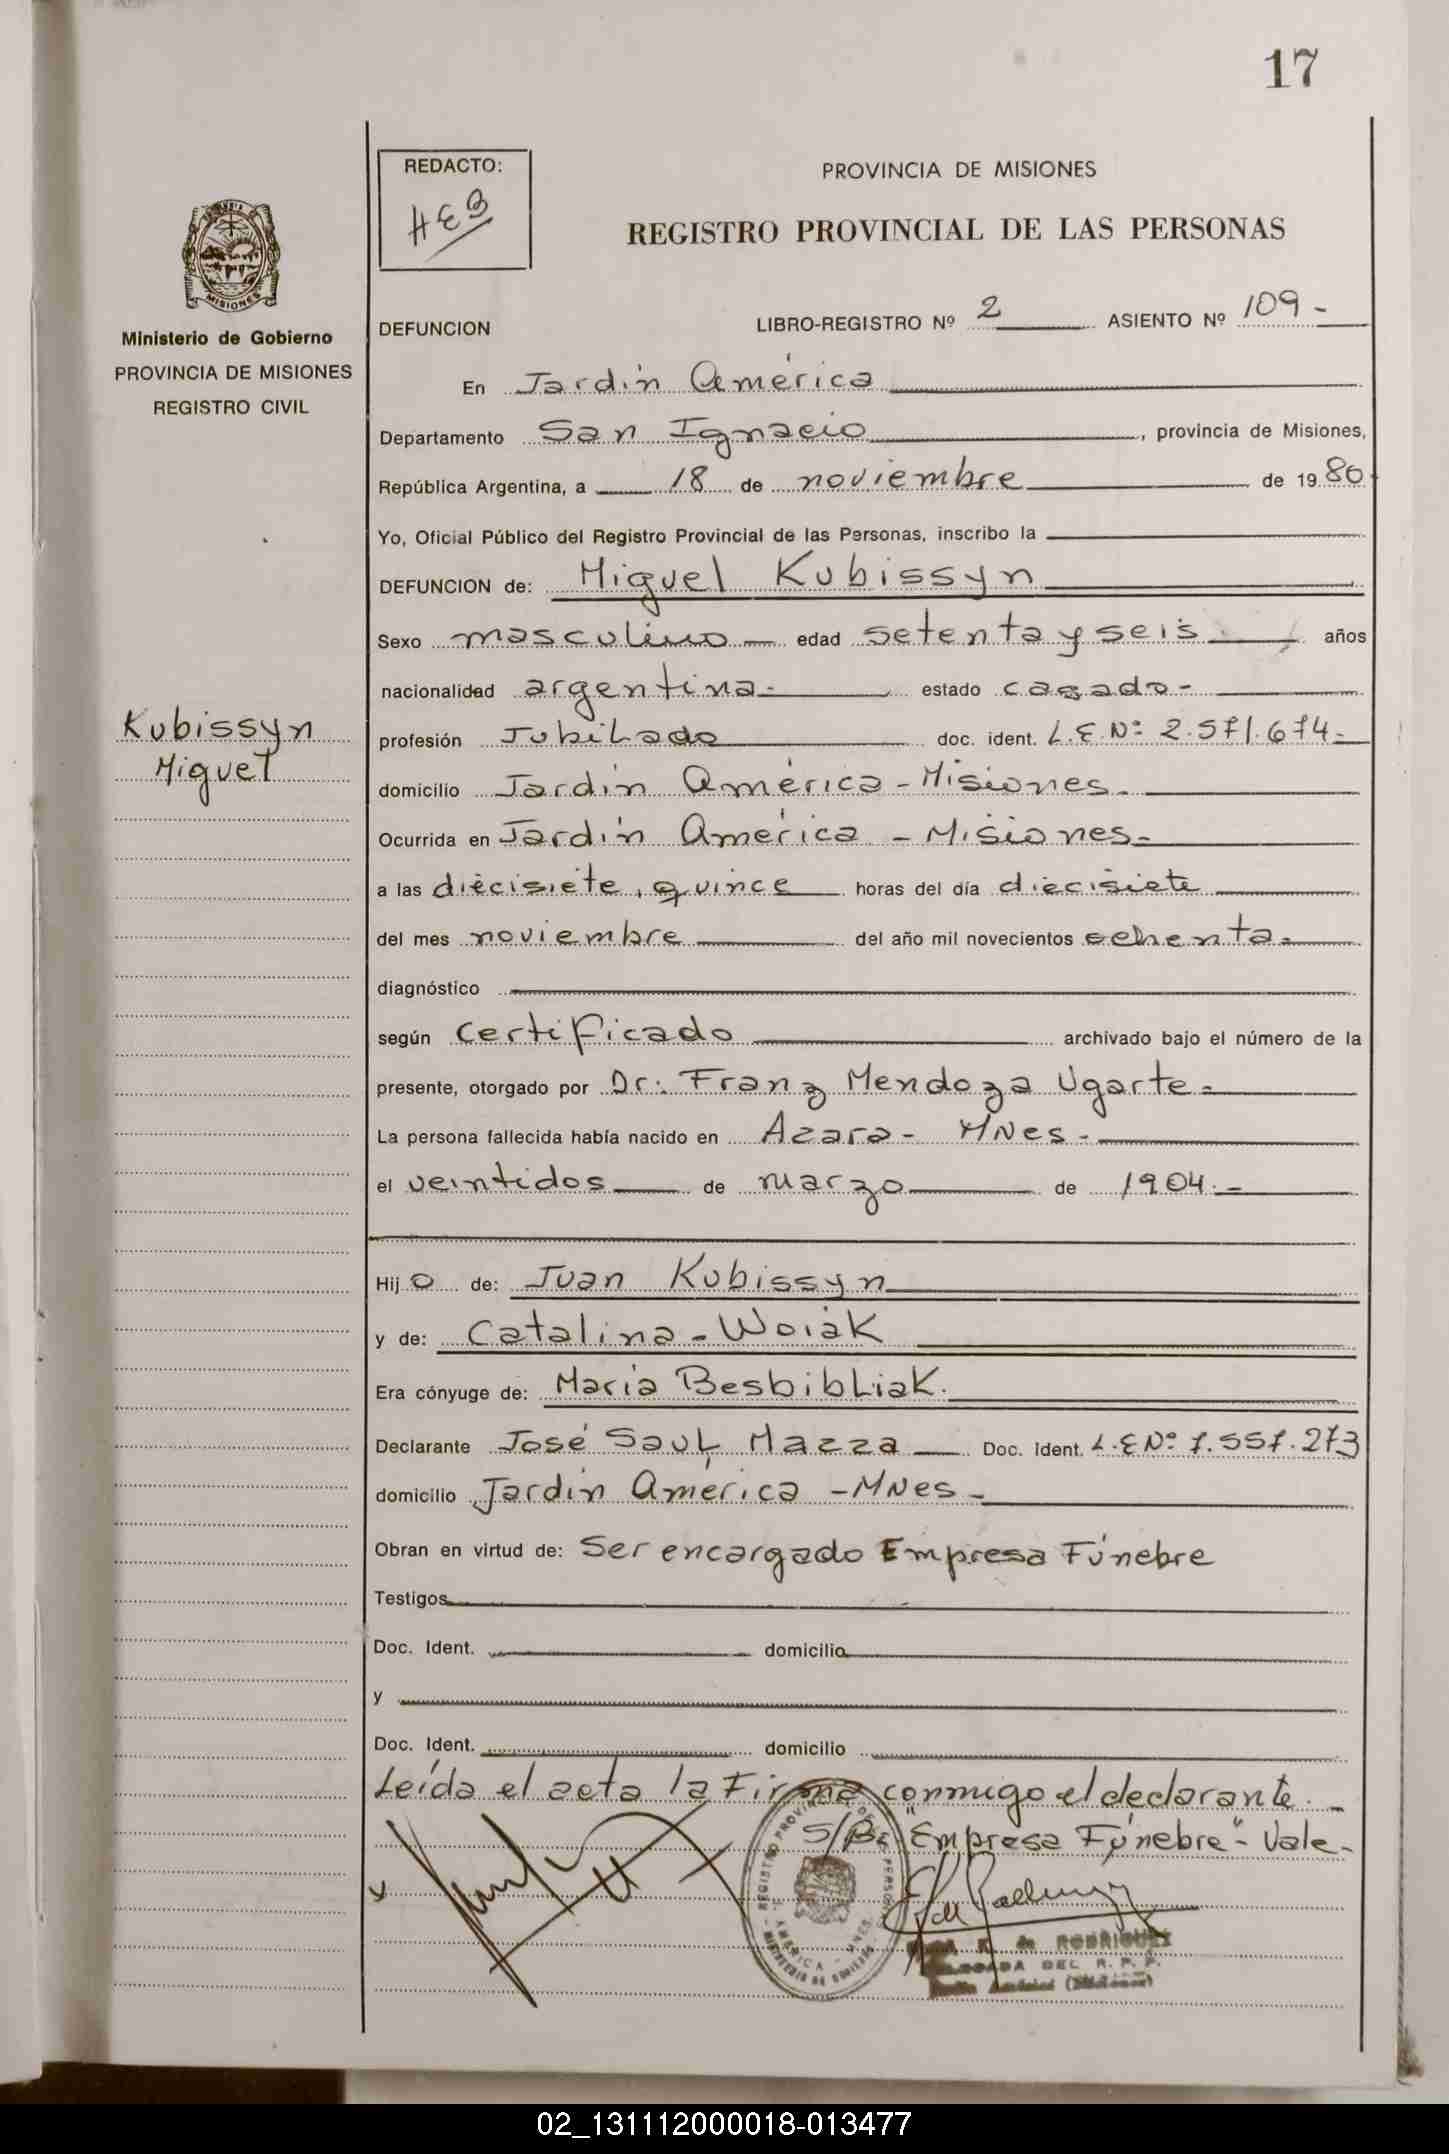 17
REDACTO:
HEB
PROVINCIA DE MISIONES
REGISTRO PROVINCIAL DE LAS PERSONAS
MISIONES
Ministerio de Gobierno
PROVINCIA DE MISIONES
REGISTRO CIVIL
DEFUNCION LIBRO-REGISTRO Nº 2 ASIENTO Nº 109-
En Jardín América
Departamento San Ignacio, provincia de Misiones,
República Argentina, a 18 de noviembre de 1980
Yo, Oficial Público del Registro Provincial de las Personas, inscribo la
DEFUNCION de: Miguel Kubissyn
Sexo masculino edad setenta y seis años
nacionalidad argentina.- estado casado-
Kubissyn
Miguel
profesión Jubilado doc. ident. L.E.Nº 2.571.674-
domicilio Jardín América - Misiones-
Ocurrida en Jardín América - Misiones-
a las diecisiete, quince horas del día diecisiete
del mes noviembre del año mil novecientos ochenta-
diagnóstico
según certificado archivado bajo el número de la
presente, otorgado por Dr. Franz Mendoza Ugarte-
La persona fallecida había nacido en Azara- MNes-
el veintidos de marzo de 1904.-
Hijo de: Juan Kubissyn
y de: Catalina-Woiak
Era cónyuge de: María Besbibliak.
Declarante José Saul Mazza Doc. Ident. L.E Nº 7.557.273
domicilio Jardín América -MNes-
Obran en virtud de: Ser encargado Empresa Fúnebre
Testigos
Doc. Ident. domicilio
y
Doc. Ident. domicilio
Leída el acta la Firma conmigo el declarante.-
S/B: "Empresa Fúnebre"- Vale-
REGISTRO PROVINCIAL DE PERSONAS
K. de RODRIGUEZ
DEL R. P. P.
(Misiones)
02_131112000018-013477